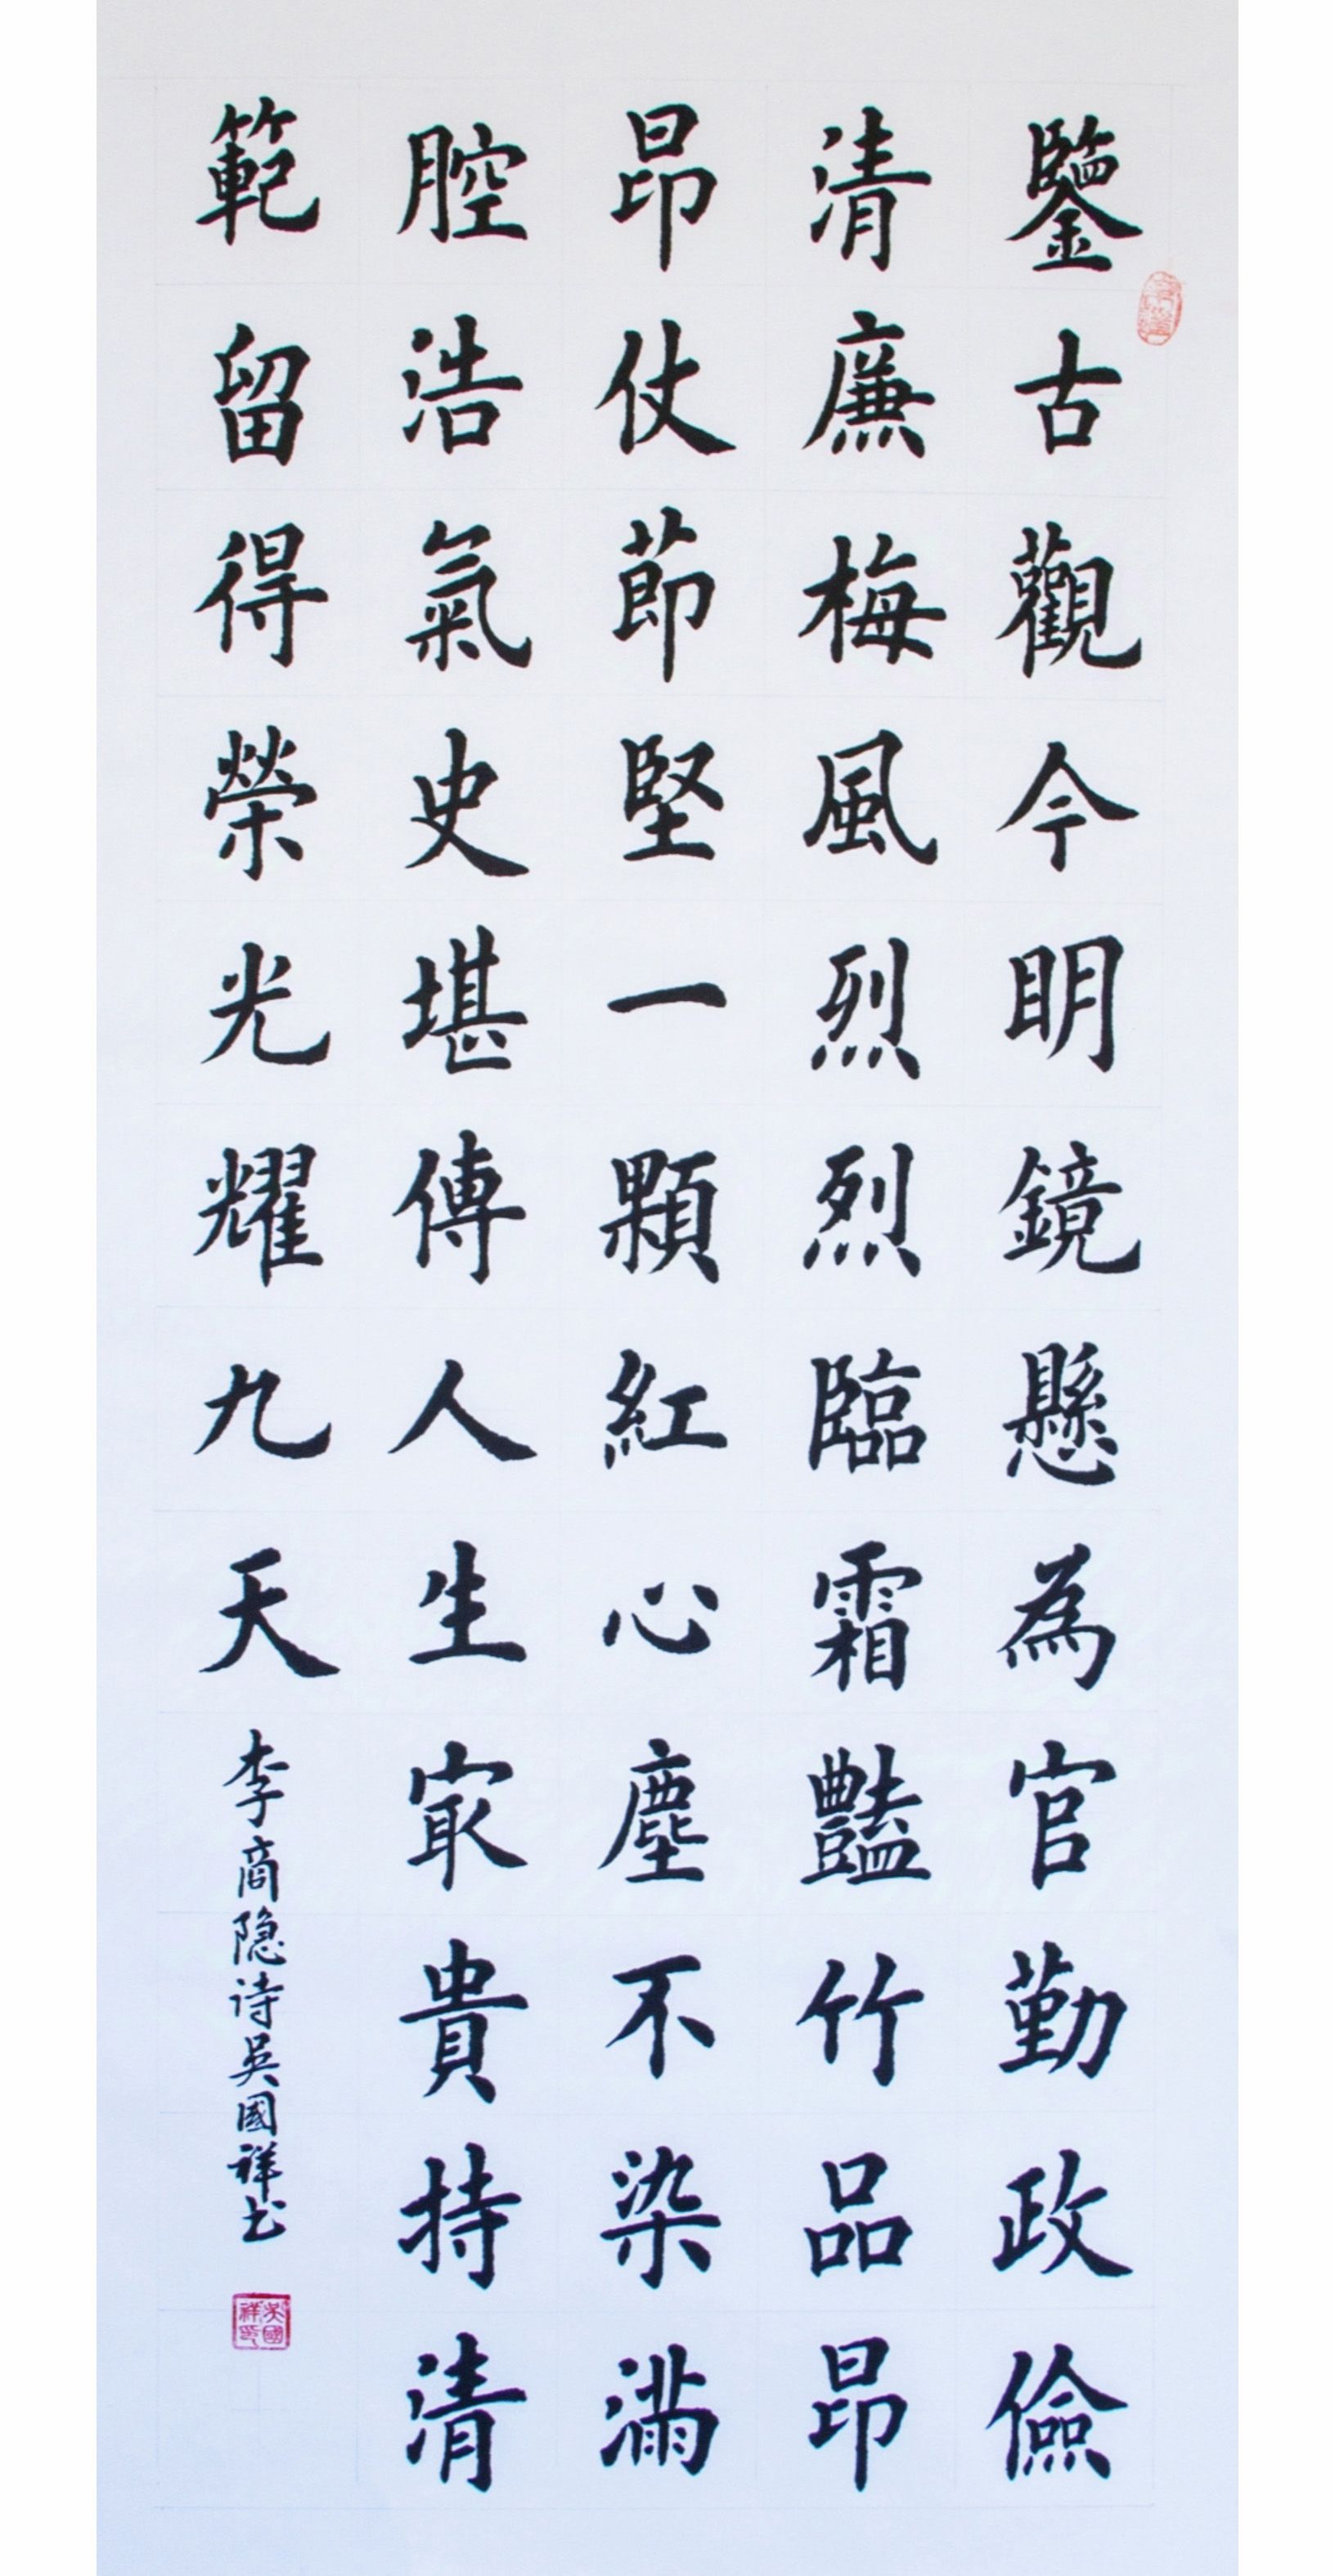 鑒古觀今明鏡懸為官勤政儉
清廉梅風烈烈臨霜豔竹品昂
昂仗節堅一顆紅心塵不染滿
腔浩氣史堪傳人生㝡貴持清
範留得榮光耀九天
李商隐诗吴國祥书
吴國祥印